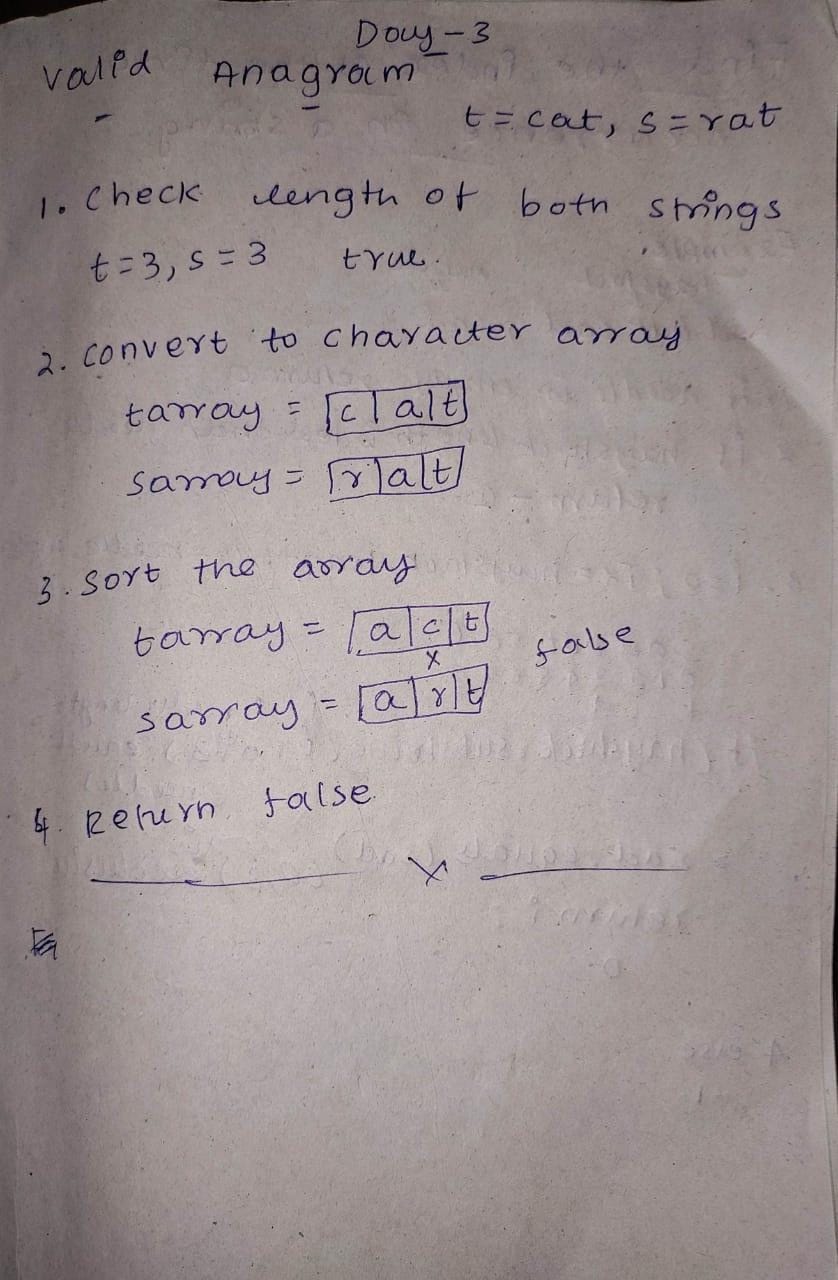 Day-3
Valid Anagram
t=cat, s=rat
1. Check length of both strings
t=3, s=3 true.
2. convert to character array
tarray = [c|a|t]
sarray = [r|a|t]
3. Sort the array
tarray = [a|c|t]
x false
sarray = [a|r|t]
4. Return false.
x